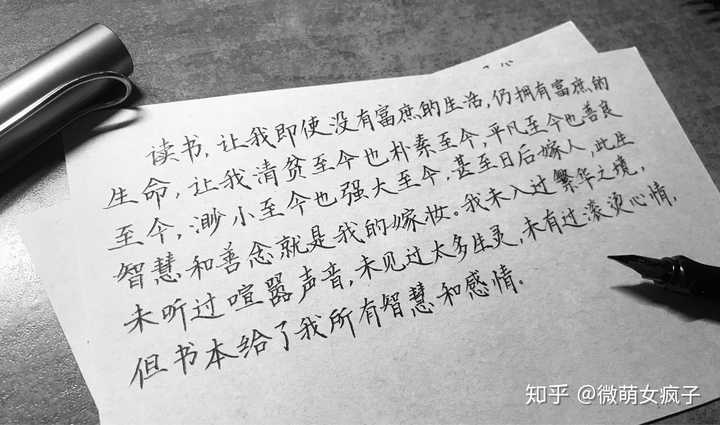 读书，让我即使没有富庶的生活，仍拥有富庶的
生命，让我清贫至今也朴素至今，平凡至今也善良
至今，渺小至今也强大至今，甚至日后嫁人，此生
智慧和善念就是我的嫁妆。我未入过繁华之境，
未听过喧嚣声音，未见过太多生灵，未有过滚烫心情，
但书本给了我所有智慧和感情。
知乎 @微萌女疯子